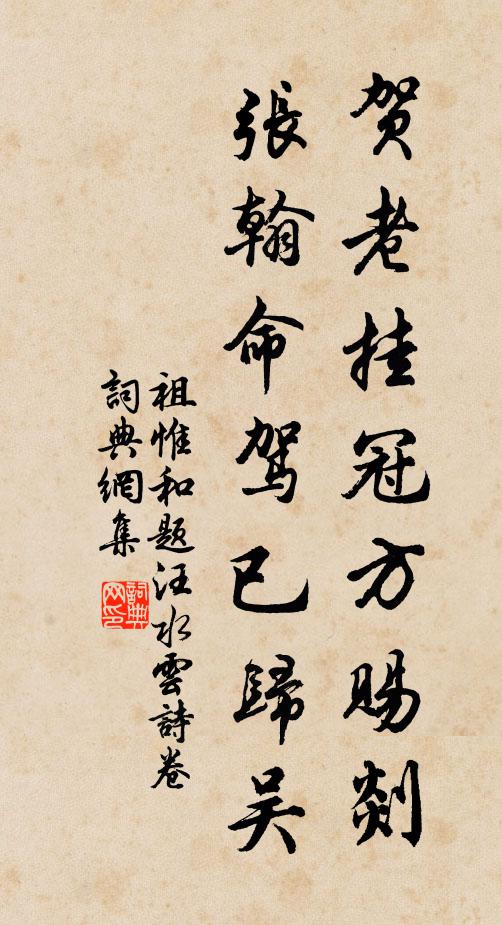 贺老挂冠方赐剡
張翰命驾已歸吴
祖惟和题汪水雲詩卷
詞典網集
詞典网印